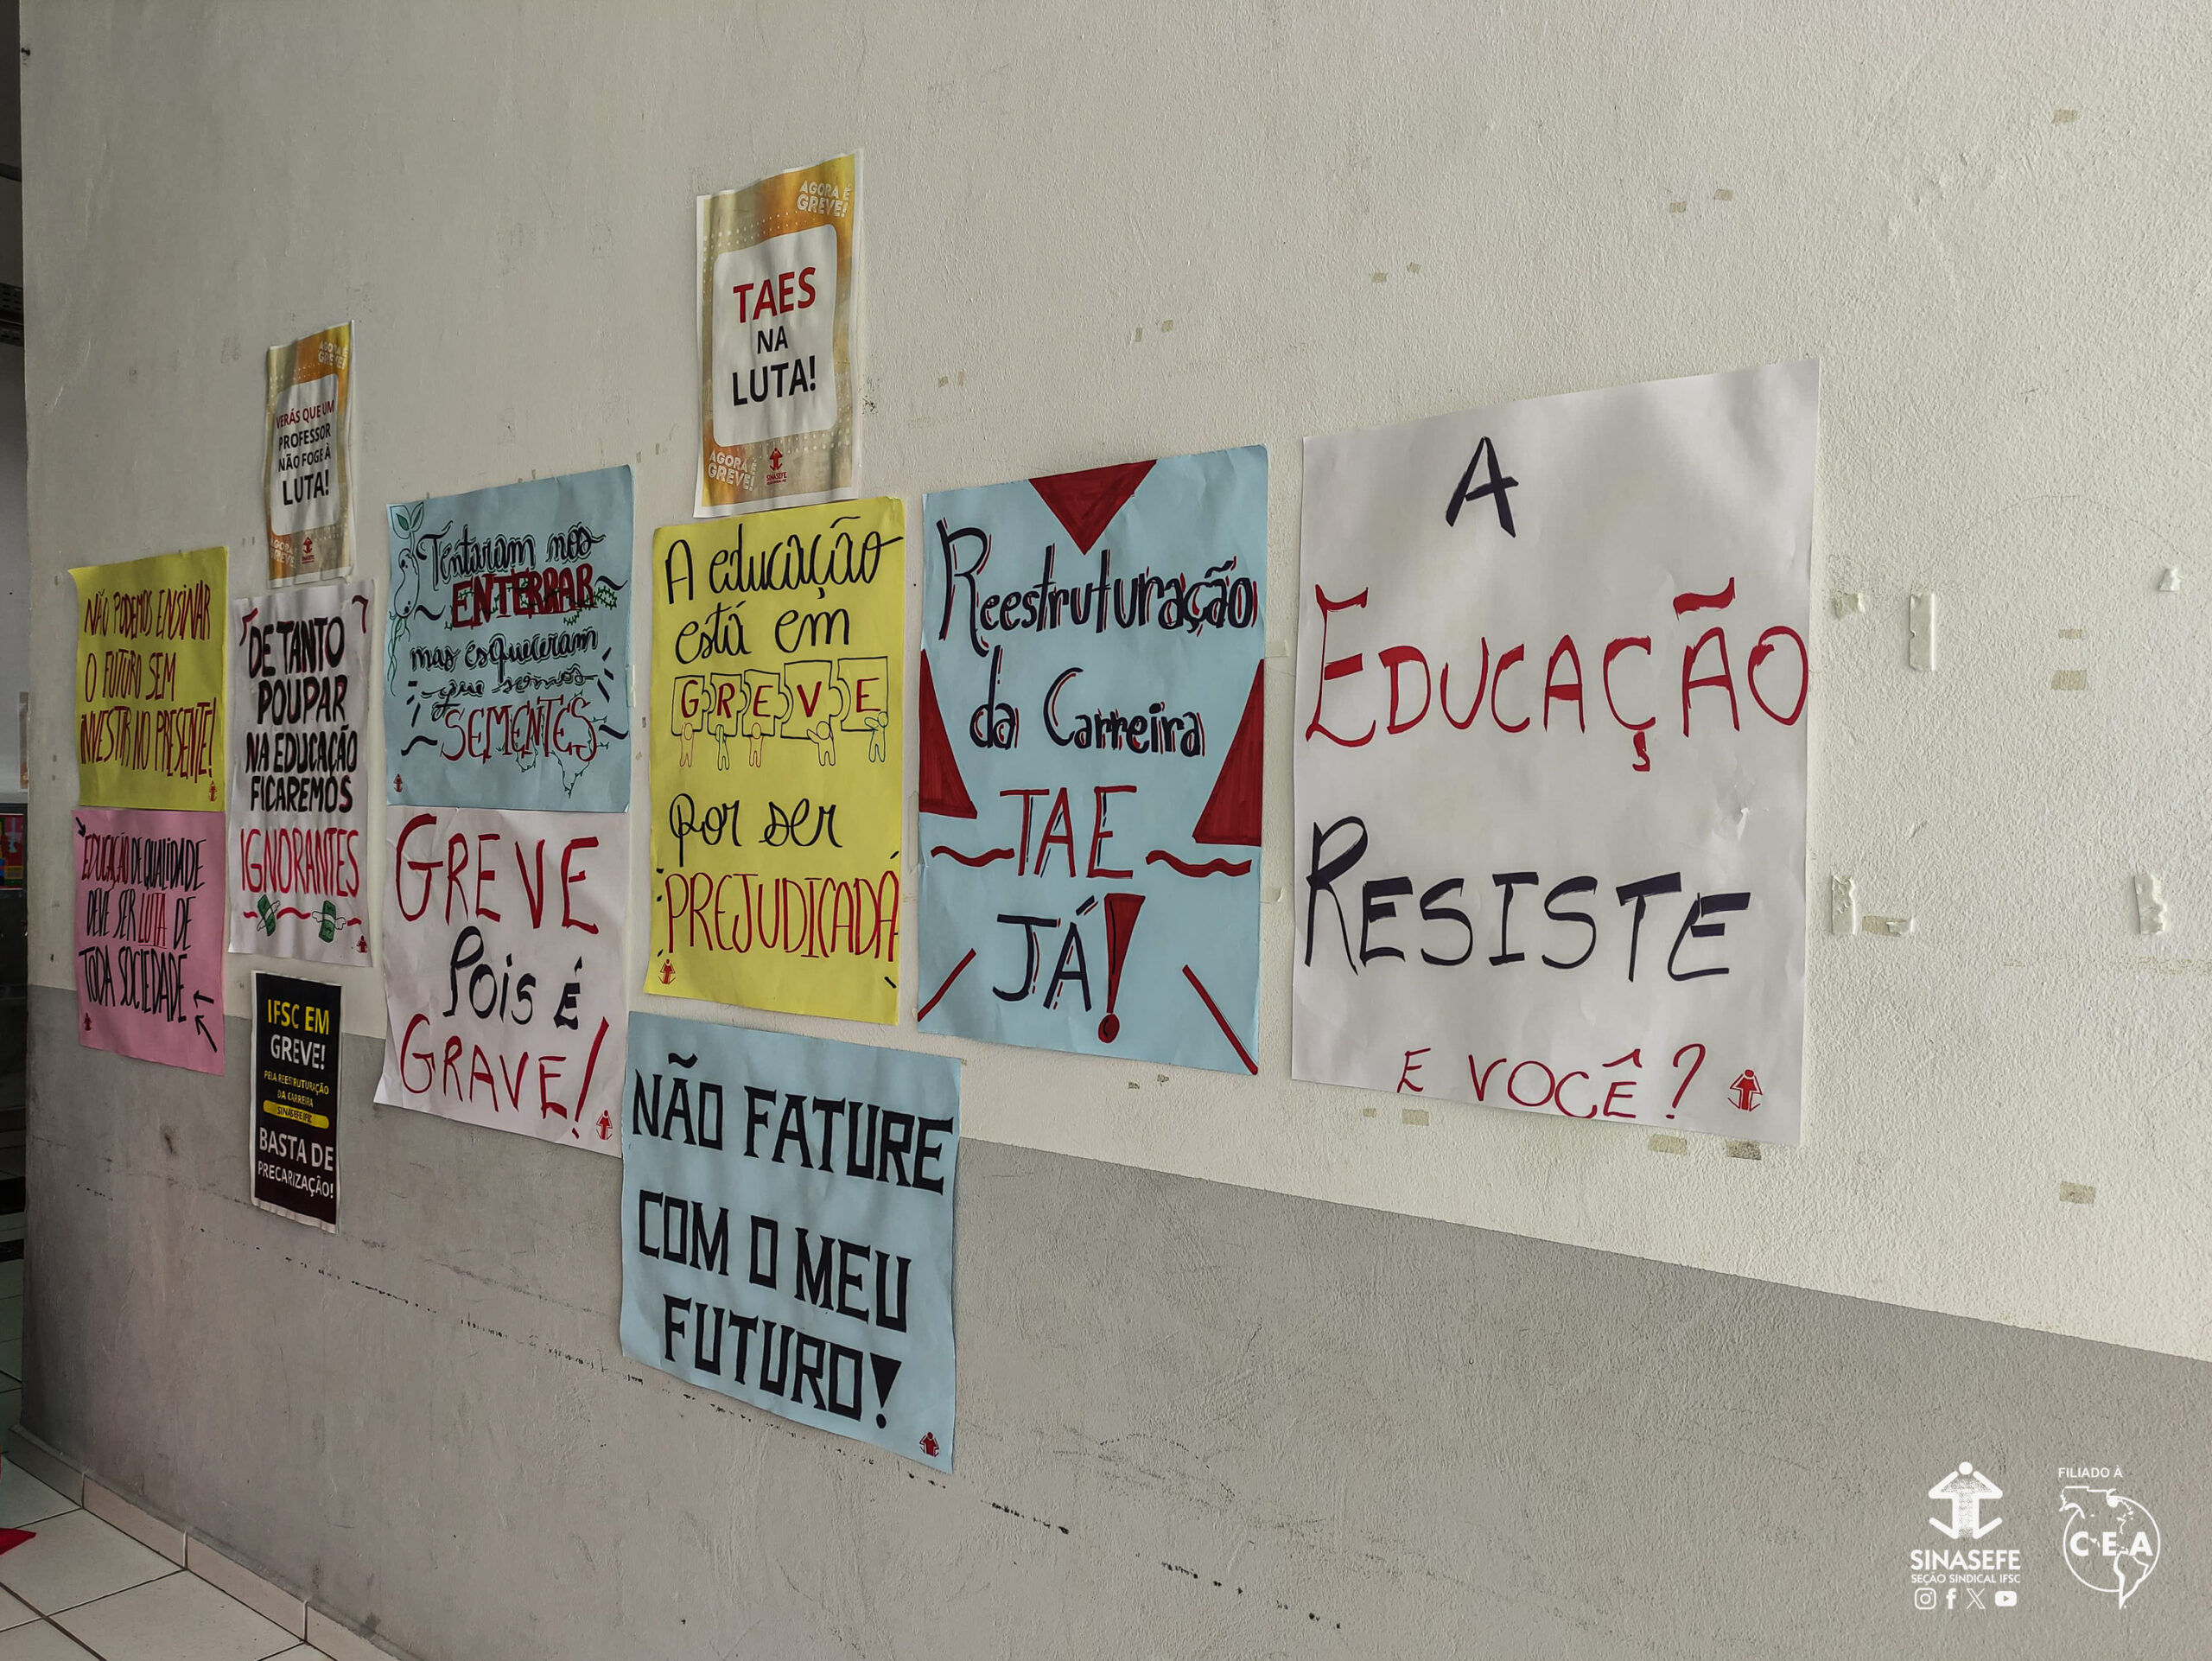 NÃO PODEMOS ENSINAR
O FUTURO SEM
INVESTIR NO PRESENTE!
EDUCAÇÃO DE QUALIDADE
DEVE SER LUTA DE
TODA SOCIEDADE
AGORA É
GREVE!
VERÁS QUE UM
PROFESSOR
NÃO FOGE À
LUTA!
AGORA É
GREVE!
DE TANTO
POUPAR
NA EDUCAÇÃO
FICAREMOS
IGNORANTES
IFSC EM
GREVE!
PELA REESTRUTURAÇÃO
DA CARREIRA
SINASEFE IFSC
BASTA DE
PRECARIZAÇÃO!
Tentaram nos
ENTERRAR
mas esqueceram
que somos
SEMENTES
GREVE
POIS É
GRAVE!
AGORA É
GREVE!
TAES
NA
LUTA!
AGORA É
GREVE!
SINASEFE
A educação
está em
GREVE
por ser
PREJUDICADA
NÃO FATURE
COM O MEU
FUTURO!
Reestruturação
da Carreira
TAE
JÁ!
A
EDUCAÇÃO
RESISTE
E VOCÊ?
SINASEFE
SEÇÃO SINDICAL IFSC
FILIADO À
C·E·A